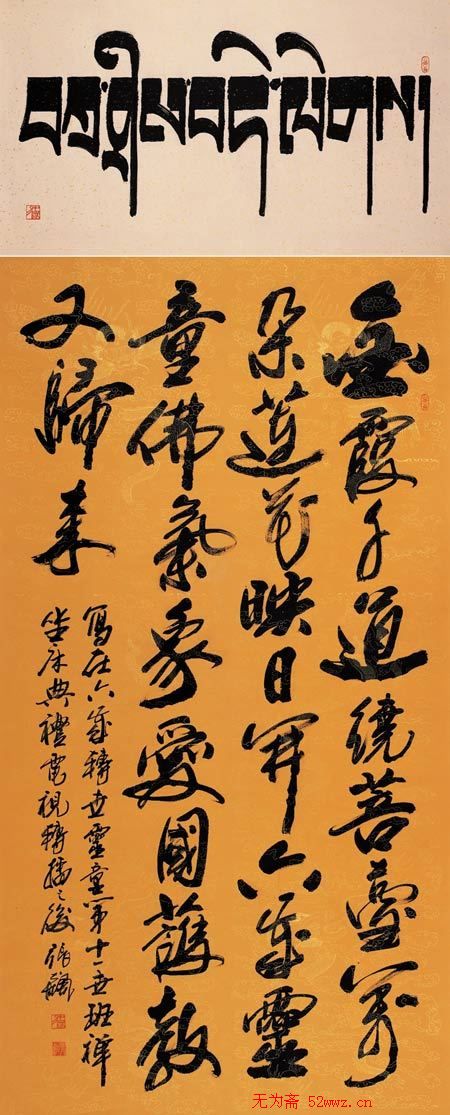 བཀྲ་ཤིས་བདེ་ལེགས།
金霞千道繞菩臺萬
朵蓮花映日開六歲靈
童佛氣象愛國護教
又歸来
寫在六歲轉世靈童第十一世班禪
坐床典禮電視轉播之後 張飆
无为斋 52wwz.cn